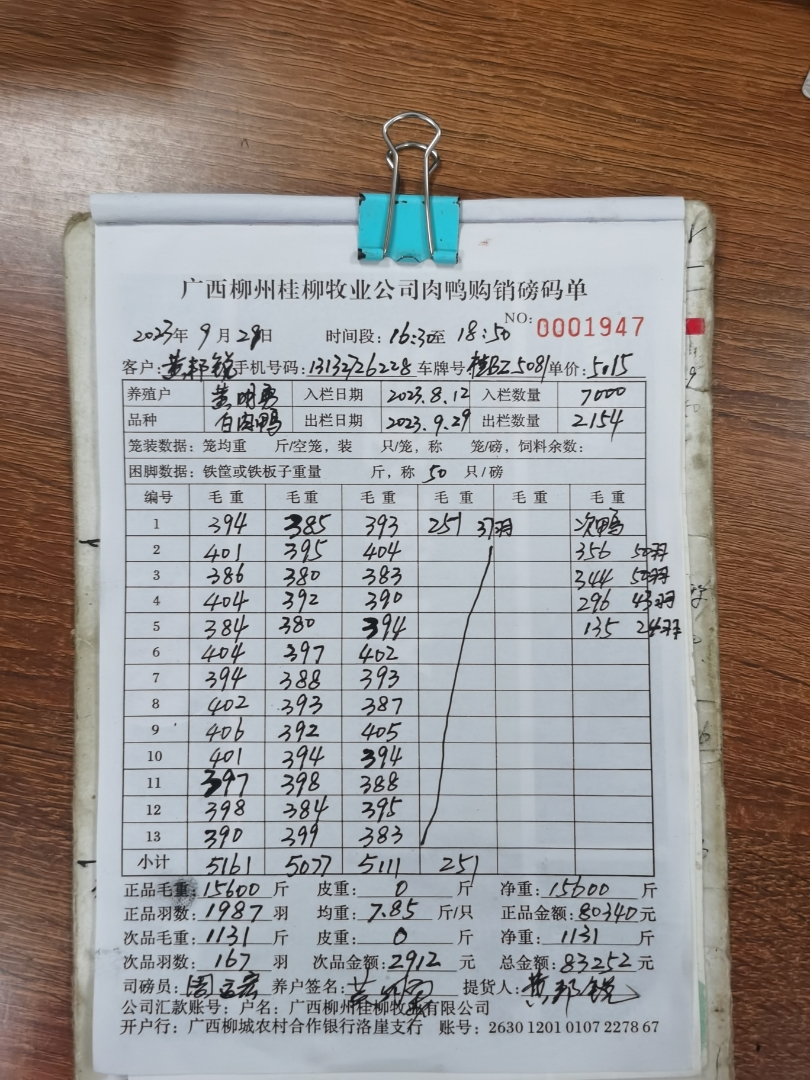 广西柳州桂柳牧业公司肉鸭购销磅码单
NO: 0001947
2023年 9 月 29日 时间段: 16:30至 18:50
客户: 黄邦锐 手机号码: 13132726228 车牌号 桂BZ5081 单价: 5.15
养殖户 黄明勇 入栏日期 2023.8.12 入栏数量 7000
品种 白肉鸭 出栏日期 2023.9.29 出栏数量 2154
笼装数据: 笼均重 斤/空笼, 装 只/笼, 称 笼/磅, 饲料余数:
困脚数据: 铁筐或铁板子重量 斤, 称 50 只/磅
编号 毛重 毛重 毛重 毛重 毛重 毛重
1 394 385 393 251 37羽 次鸭
2 401 395 404 356 50羽
3 386 380 383 344 50羽
4 404 392 390 296 43羽
5 384 380 394 135 24羽
6 404 397 402
7 394 388 393
8 402 393 387
9 406 392 405
10 401 394 394
11 397 398 388
12 398 384 395
13 390 399 383
小计 5161 5077 5111 251
正品毛重: 15600 斤 皮重: 0 斤 净重: 15600 斤
正品羽数: 1987 羽 均重: 7.85 斤/只 正品金额: 80340 元
次品毛重: 1131 斤 皮重: 0 斤 净重: 1131 斤
次品羽数: 167 羽 次品金额: 2912 元 总金额: 83252 元
司磅员: 养户签名: 黄明勇 提货人: 黄邦锐
公司汇款账号: 户名: 广西柳州桂柳牧业有限公司
开户行: 广西柳城农村合作银行洛崖支行 账号: 2630 1201 0107 2278 67